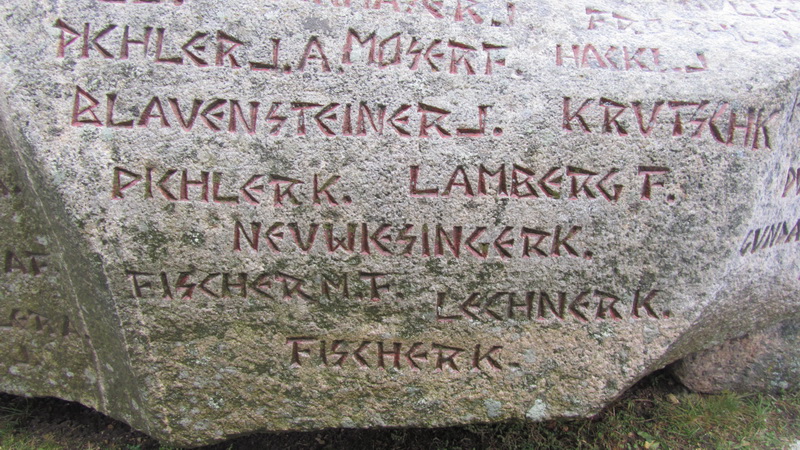 PICHLER J.A. MOSER F. HACKL J.
BLAUENSTEINER J. KRUTSCHK
PICHLER K. LAMBERG F.
NEUWIESINGER K.
FISCHER M. F. LECHNER K.
FISCHER K.